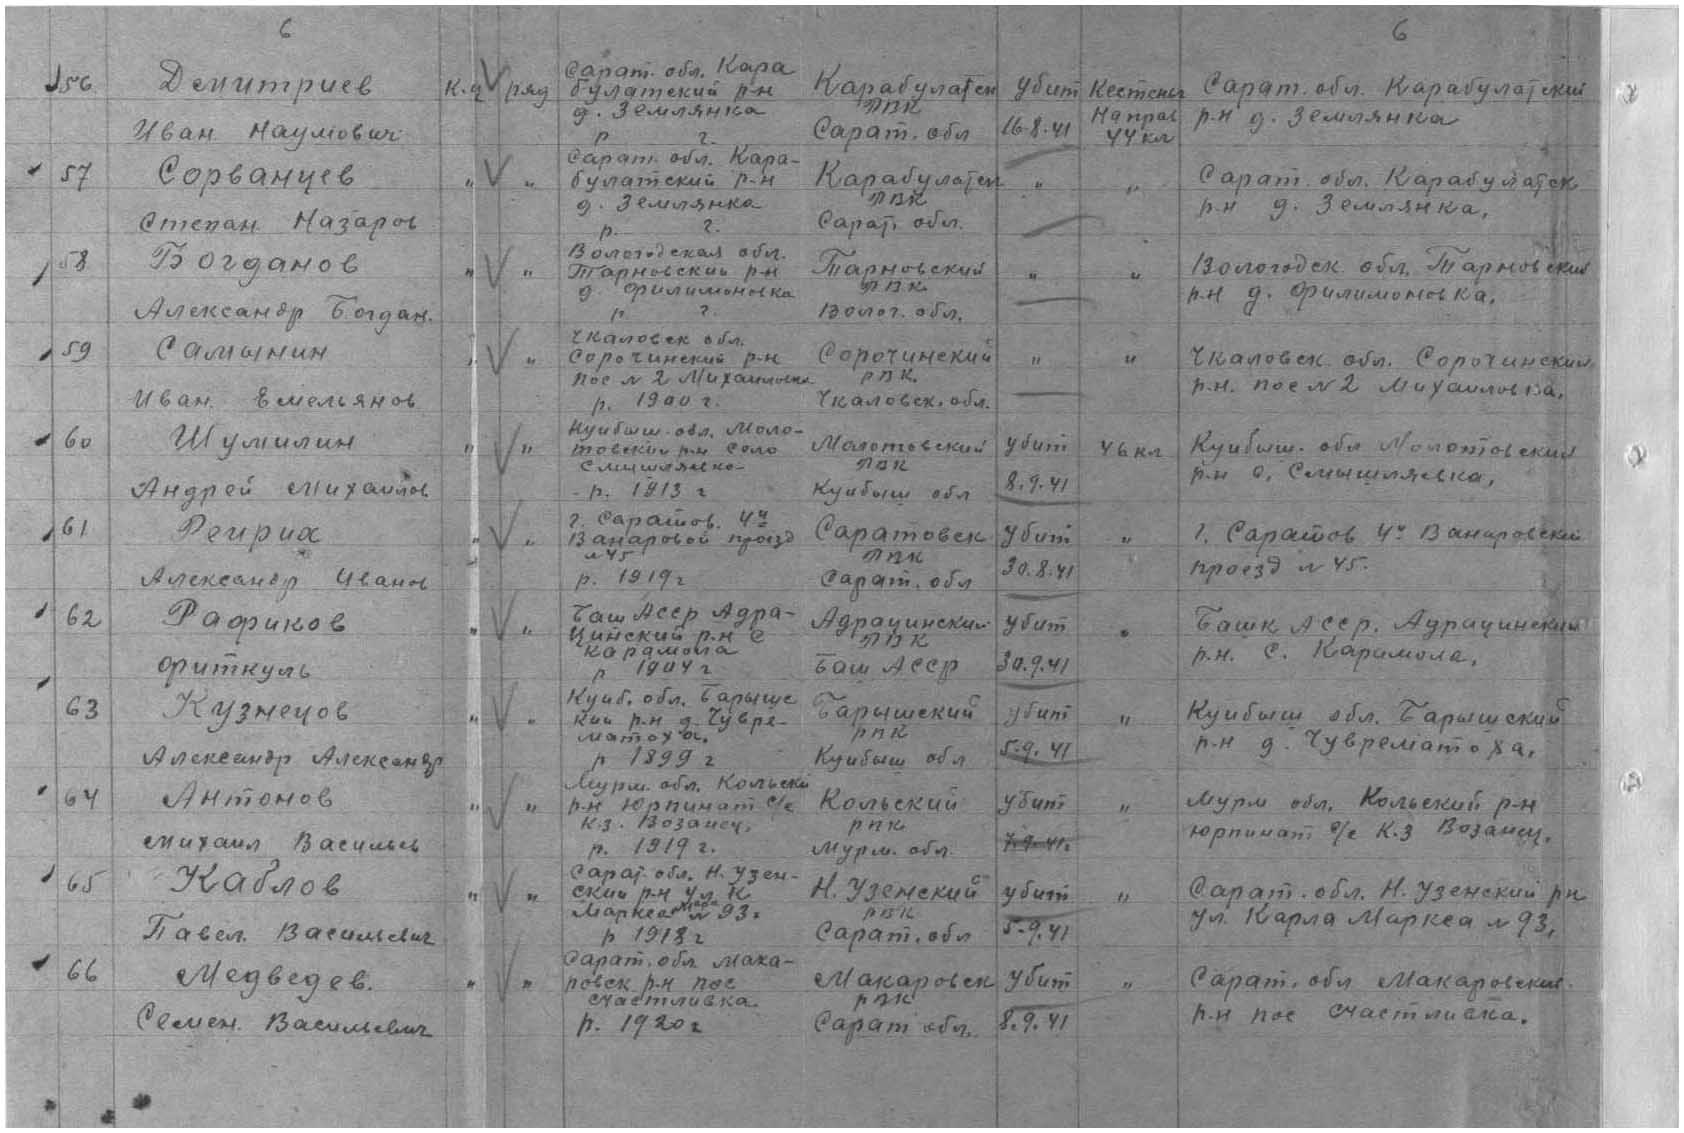 6 6
56 Демитриев К.ч ряд Сарат. обл. Кара Карабулатск убит Кестеньг Сарат. обл. Карабулатский
булатский р-н РВК Направ р-н д. Землянка
д. Землянка
Иван Наумович р г. Сарат. обл 16.8.41 44 кл
57 Сорванцев " " Сарат. обл. Кара- Карабулатск " " Сарат. обл. Карабулатск
булатский р-н РВК р-н д. Землянка,
д. Землянка
Степан Назаров р. г. Сарат. обл.
58 Богданов " " Вологодская обл. Тарновский " " Вологодск обл. Тарновский
Тарновский р-н РВК р-н д. Филимоновка,
д. Филимоновка
Александр Богдан. р г. Волог. обл.
59 Самынин " " Чкаловск обл. Сорочинский " " Чкаловск обл. Сорочинский
Сорочинский р-н РВК. р-н. пос № 2 Михаиловка,
пос № 2 Михаиловка
Иван Емельянов р. 1900 г. Чкаловск. обл.
60 Шумилин " " Куйбыш. обл. Моло- Молотовский убит 46 кл Куйбыш. обл Молотовский
товский р-н село РВК р-н с. Смышляевка,
Смышляевка
Андрей Михаилов р. 1913 г Куйбыш обл 8.9.41
61 Рейрих " " г. Саратов. 4й Саратовск убит " г. Саратов 4й
проезд РВК проезд № 45.
№ 45
Александр Иванов р. 1919 г Сарат. обл 30.8.41
62 Рафиков " " Баш Асср Адра- Адрацинский убит " Башк Асср. Адрацинский
цинский р-н с РВК р-н. с. Карамола,
Карамола
Фриткуль р 1904 г Баш Асср 30.9.41
63 Кузнецов " " Куйб. обл. Барышс Барышский убит " Куйбыш обл. Барышский
кий р-н д. Чувре- РВК р-н д. Чуврематоха,
матоха.
Александр Александр р 1899 г Куйбыш обл 5.9.41
64 Антонов " " Мурм. обл. Кольский Кольский убит " Мурм обл. Кольский р-н
р-н Юрпинат с/с РВК Юрпинат с/с К.з Возанец,
к.з. Возанец,
Михаил Васильев р. 1919 г. Мурм. обл. 7.9.41г
65 Каблов " " Сарат. обл. Н. Узен- Н. Узенский убит " Сарат. обл. Н. Узенский р-н
ский р-н ул. К РВК ул. Карла Маркса № 93,
Маркса № 93.
Павел Васильевич р 1918 г Сарат. обл 5.9.41
66 Медведев. " " Сарат. обл Мака- Макаровск убит " Сарат. обл Макаровский
ровск р-н пос РВК р-н пос Счастливка.
Счастливка.
Семен Васильевич р. 1920 г Сарат обл. 8.9.41